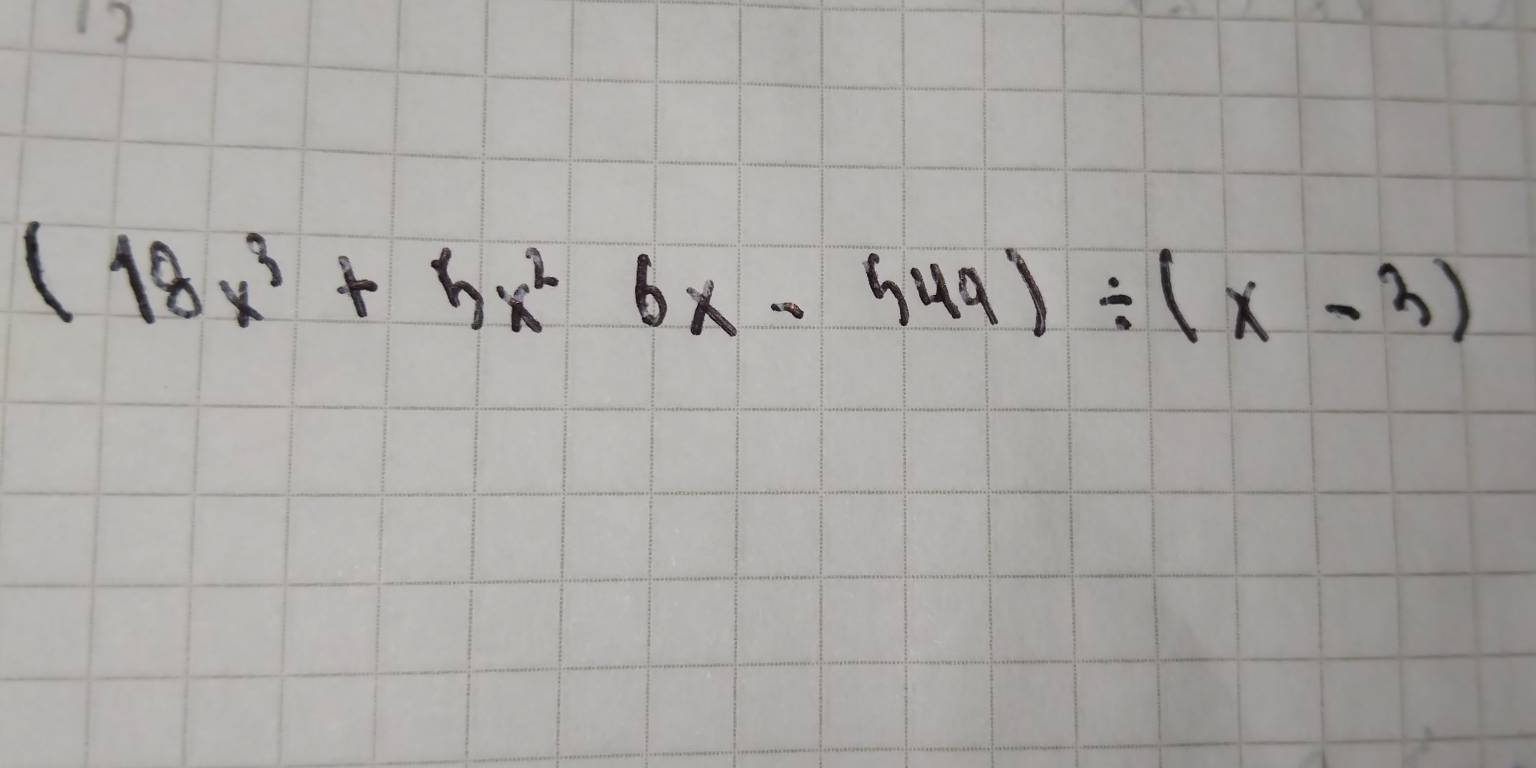 (18x³ + 5x² 6x - 549) ÷ (x - 3)